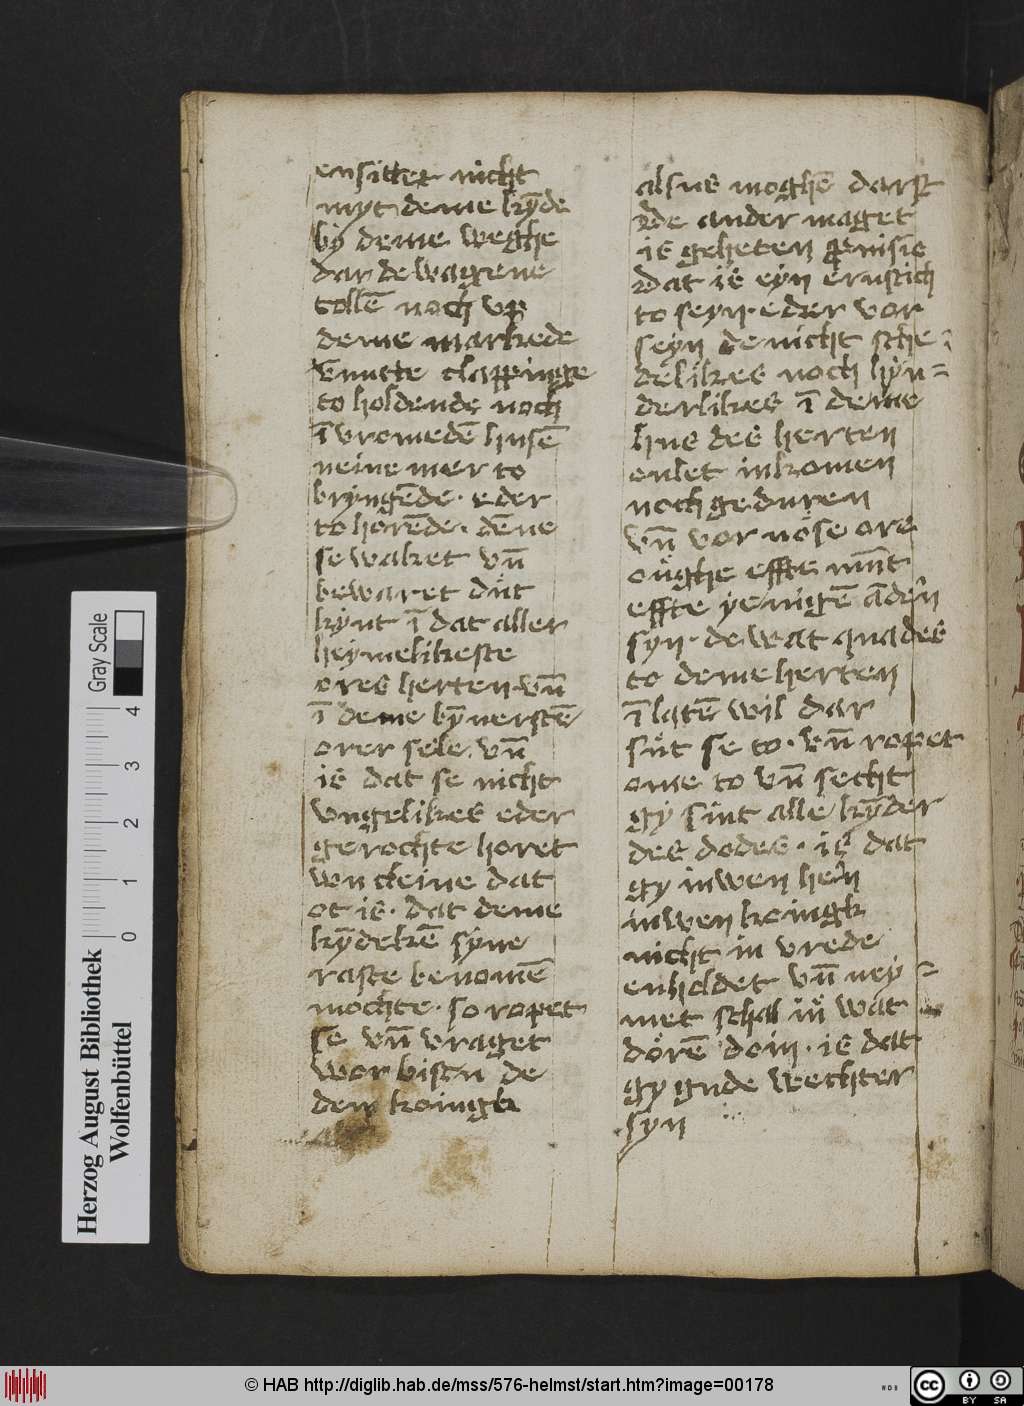 ensitter nicht
myt deme ky̅de
by deme weghe
dar de wagene
tolle̅ noch vp
deme markede
vnutte clappinge
to holdende noch
i̅ vromede̅ huse̅
neine mer to
bringe̅de · eder
to hore̅de · de̅ne
se waket vn̅
bewaret dut
kynt i̅ dat aller
heymelikeste
ores herten vn̅
i̅ deme by̅nerste̅
orer sele vn̅
is dat se nicht
vngelikes eder
gerochte horet
wu cleine dat
ot is · dat deme
ky̅deke̅ syne
raste benome̅
mochte · so ropet
se vn̅ vraget
wor bistu de
den koningk
alsus moghe̅
De ander maget
is geheten
Dat is eyn ernstich
to seyn · eder vor
seyn de nicht sche
delikes noch hyn=
derlikes i̅ deme
hus des herten
enlet inkomen
noch geduren
vn̅ vor nöse ore
oughe effte mu̅t
effte yenige̅ a̅der̅n
syn · de wat quades
to deme herten
i̅ late̅ wil dar
sut se to · vn̅ ropet
ome to vn̅ secht
gy sint alle ky̅der
des dodes · is dat
gy inwen her̅n
inwen koningk
nicht in vrede
enholdet vn̅ ney=
met schal iu̅ wat
döre̅ doin · is dat
gy gude wechter
syn
Herzog August Bibliothek
Wolfenbüttel
Gray Scale
0 1 2 3 4
© HAB http://diglib.hab.de/mss/576-helmst/start.htm?image=00178
cc
BY SA